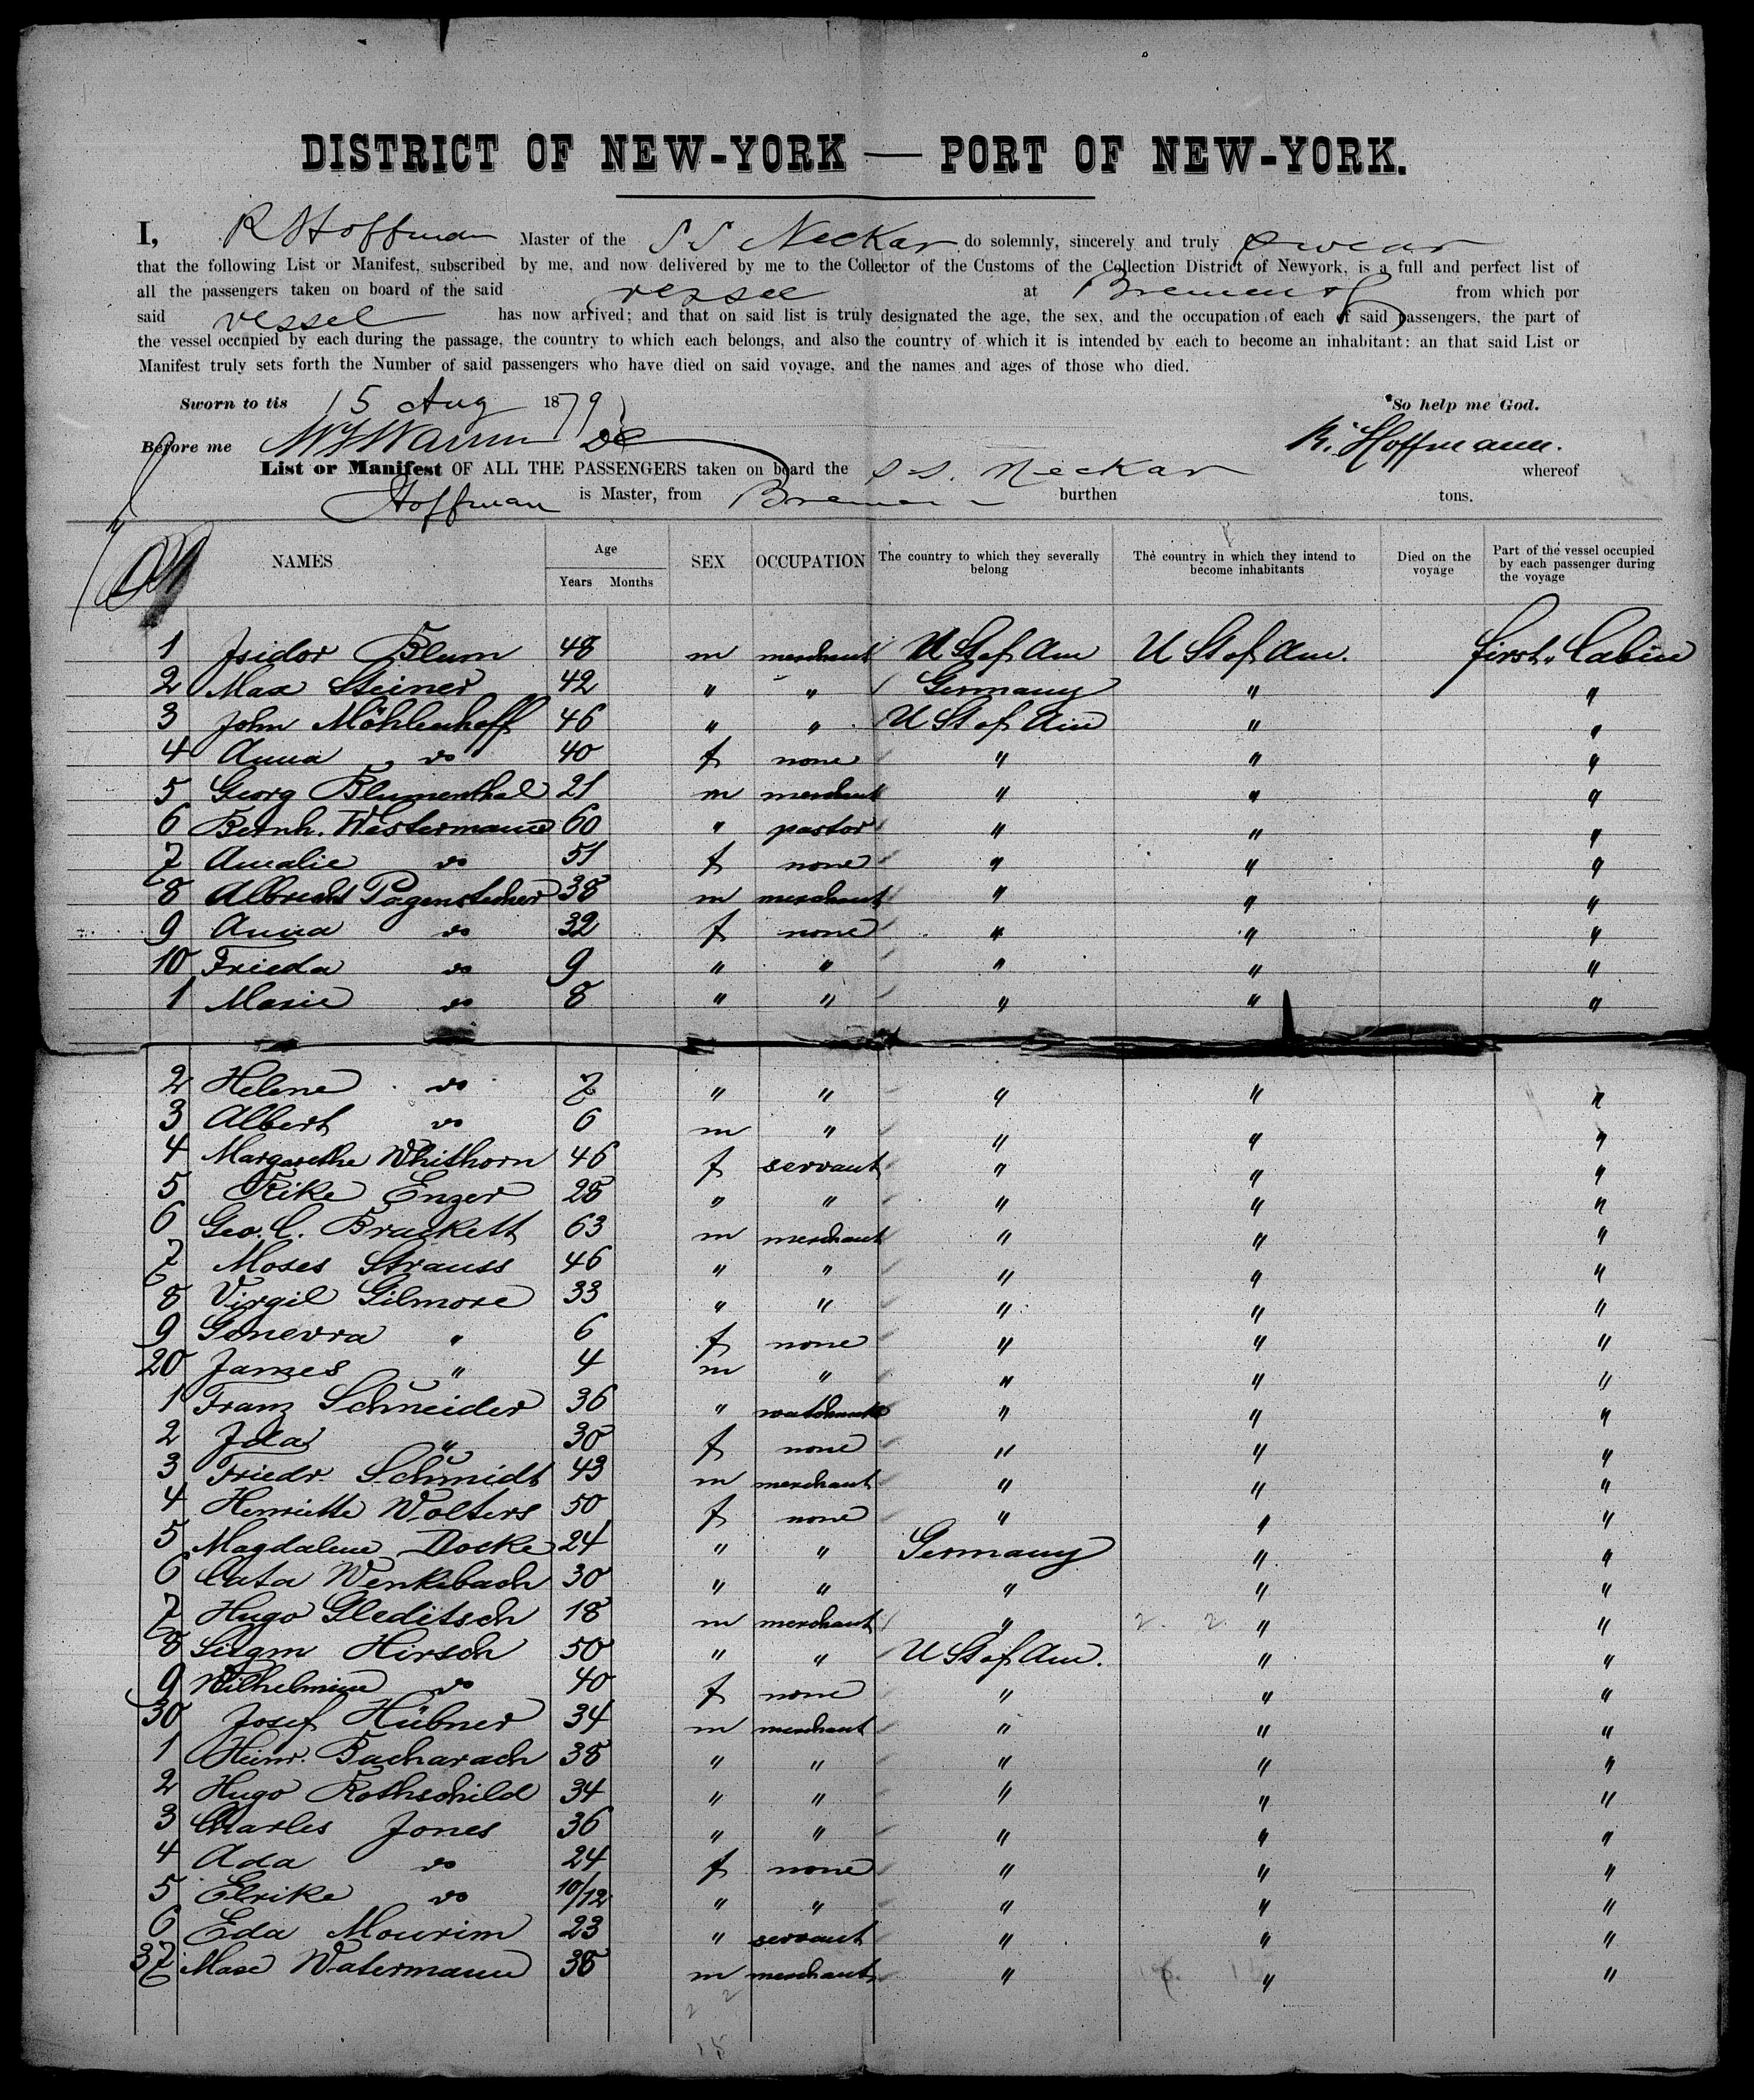 DISTRICT OF NEW-YORK — PORT OF NEW-YORK.
I, R Hoffman Master of the SS Neckar do solemnly, sincerely and truly swear
that the following List or Manifest, subscribed by me, and now delivered by me to the Collector of the Customs of the Collection District of Newyork, is a full and perfect list of
all the passengers taken on board of the said vessel at Bremen from which por
said vessel has now arrived; and that on said list is truly designated the age, the sex, and the occupation of each of said passengers, the part of
the vessel occupied by each during the passage, the country to which each belongs, and also the country of which it is intended by each to become an inhabitant: an that said List or
Manifest truly sets forth the Number of said passengers who have died on said voyage, and the names and ages of those who died.
Sworn to tis 15 Aug 1879 So help me God.
Before me R. Hoffmann.
List or Manifest OF ALL THE PASSENGERS taken on board the S.S. Neckar whereof
Hoffman is Master, from Bremen burthen tons.
NAMES Age Years Months SEX OCCUPATION The country to which they severally belong The country in which they intend to become inhabitants Died on the voyage Part of the vessel occupied by each passenger during the voyage
1 Isidor Blum 48 m merchant U St of Am U St of Am. first Cabin
2 Max Steiner 42 " " Germany " "
3 John Möhlenhoff 46 " " U St of Am " "
4 Anna do 40 f none " " "
5 Georg Blumenthal 21 m merchant " " "
6 Bernh. Westermann 60 " pastor " " "
7 Amalie do 51 f none " " "
8 Albrecht Pagenstecher 38 m merchant " " "
9 Anna do 32 f none " " "
10 Frieda do 9 " " " " "
1 Marie do 8 " " " " "
2 Helene do 7 " " " " "
3 Albert do 6 m " " " "
4 Margarethe Whithorn 46 f servant " " "
5 Rike Enzer 28 " " " " "
6 Geo. C. Brackett 63 m merchant " " "
7 Moses Strauss 46 " " " " "
8 Virgil Gilmore 33 " " " " "
9 Genevra " 6 f none " " "
20 James " 4 m " " " "
1 Franz Schneider 36 " " " "
2 Ida " 30 f none " " "
3 Friedr. Schmidt 43 m merchant " " "
4 Henriette Wolters 50 f none " " "
5 Magdalene Docke 24 " " Germany " "
6 Cata Wenkebach 30 " " " " "
7 Hugo Gleditsch 18 m merchant " " "
8 Siegm Hirsch 50 " " U St of Am. " "
9 Wilhelmine do 40 f none " " "
30 Josef Hübner 34 m merchant " " "
1 Heinr. Bacharach 38 " " " " "
2 Hugo Rothschild 34 " " " " "
3 Charles Jones 36 " " " " "
4 Ada do 24 f none " " "
5 Elrike do 10/12 " " " " "
6 Eda Mourim 23 " servant " " "
37 Max Watermann 38 m merchant " " "